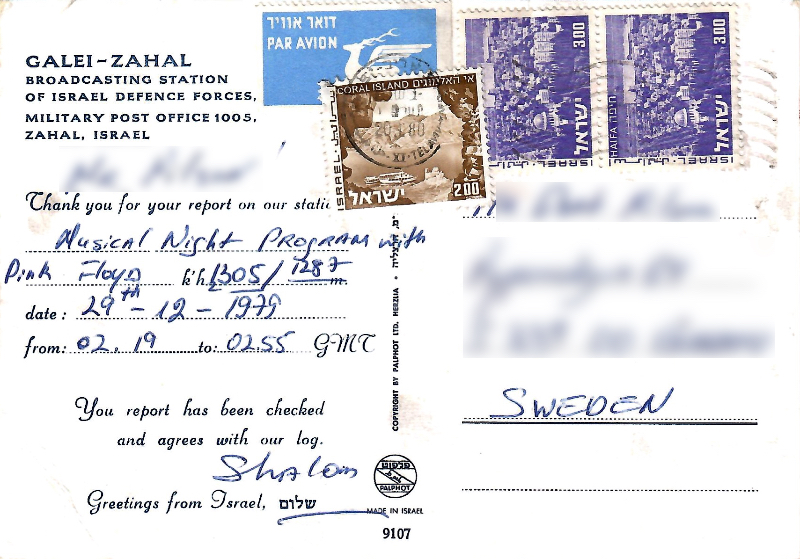 GALEI-ZAHAL
BROADCASTING STATION
OF ISRAEL DEFENCE FORCES,
MILITARY POST OFFICE 1005,
ZAHAL, ISRAEL
Thank you for your report on our
Musical Night PROGRAM with
Pink Floyd k'h 1305/1287 m.
date: 29th - 12 - 1979
from: 02.19 to: 02.55 GMT
You report has been checked
and agrees with our log.
Shalom
Greetings from Israel, שלום
דואר אוויר
PAR AVION
אי האלמוגים CORAL ISLAND
ISRAEL
ישראל
2.00
20.1.80
3.00
ישראל
ISRAEL
3.00
חיפה HAIFA
ישראל
ISRAEL
COPYRIGHT BY PALPHOT LTD. HERZLIA
פלפוט
PALPHOT
MADE IN ISRAEL
9107
SWEDEN